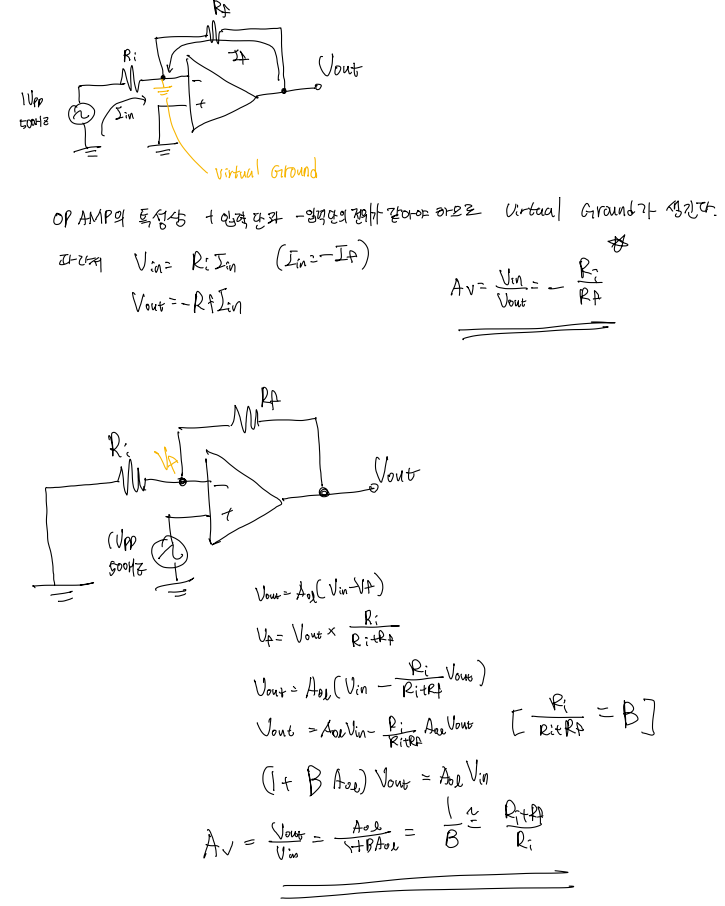 Rf
Ri
If
Vout
1Vpp
500Hz
Iin
Virtual Ground
OP AMP의 특성상 + 입력 단과 -입력단의 전위가 같아야 하므로 Virtual Ground가 생긴다.
따라서 Vin = Ri Iin (Iin = -If)
Vout = -Rf Iin
Av = Vin/Vout = - Ri/Rf
Rf
Ri
Vf
Vout
1Vpp
500Hz
Vout = Aol(Vin-Vf)
Vf = Vout × Ri/Ri+Rf
Vout = Aol(Vin - Ri/Ri+Rf Vout)
Vout = AolVin - Ri/Ri+Rf Aol Vout [Ri/Ri+Rf = B]
(1 + B Aol) Vout = Aol Vin
Av = Vout/Vin = Aol/1+BAol = 1/B ≃ Ri+Rf/Ri